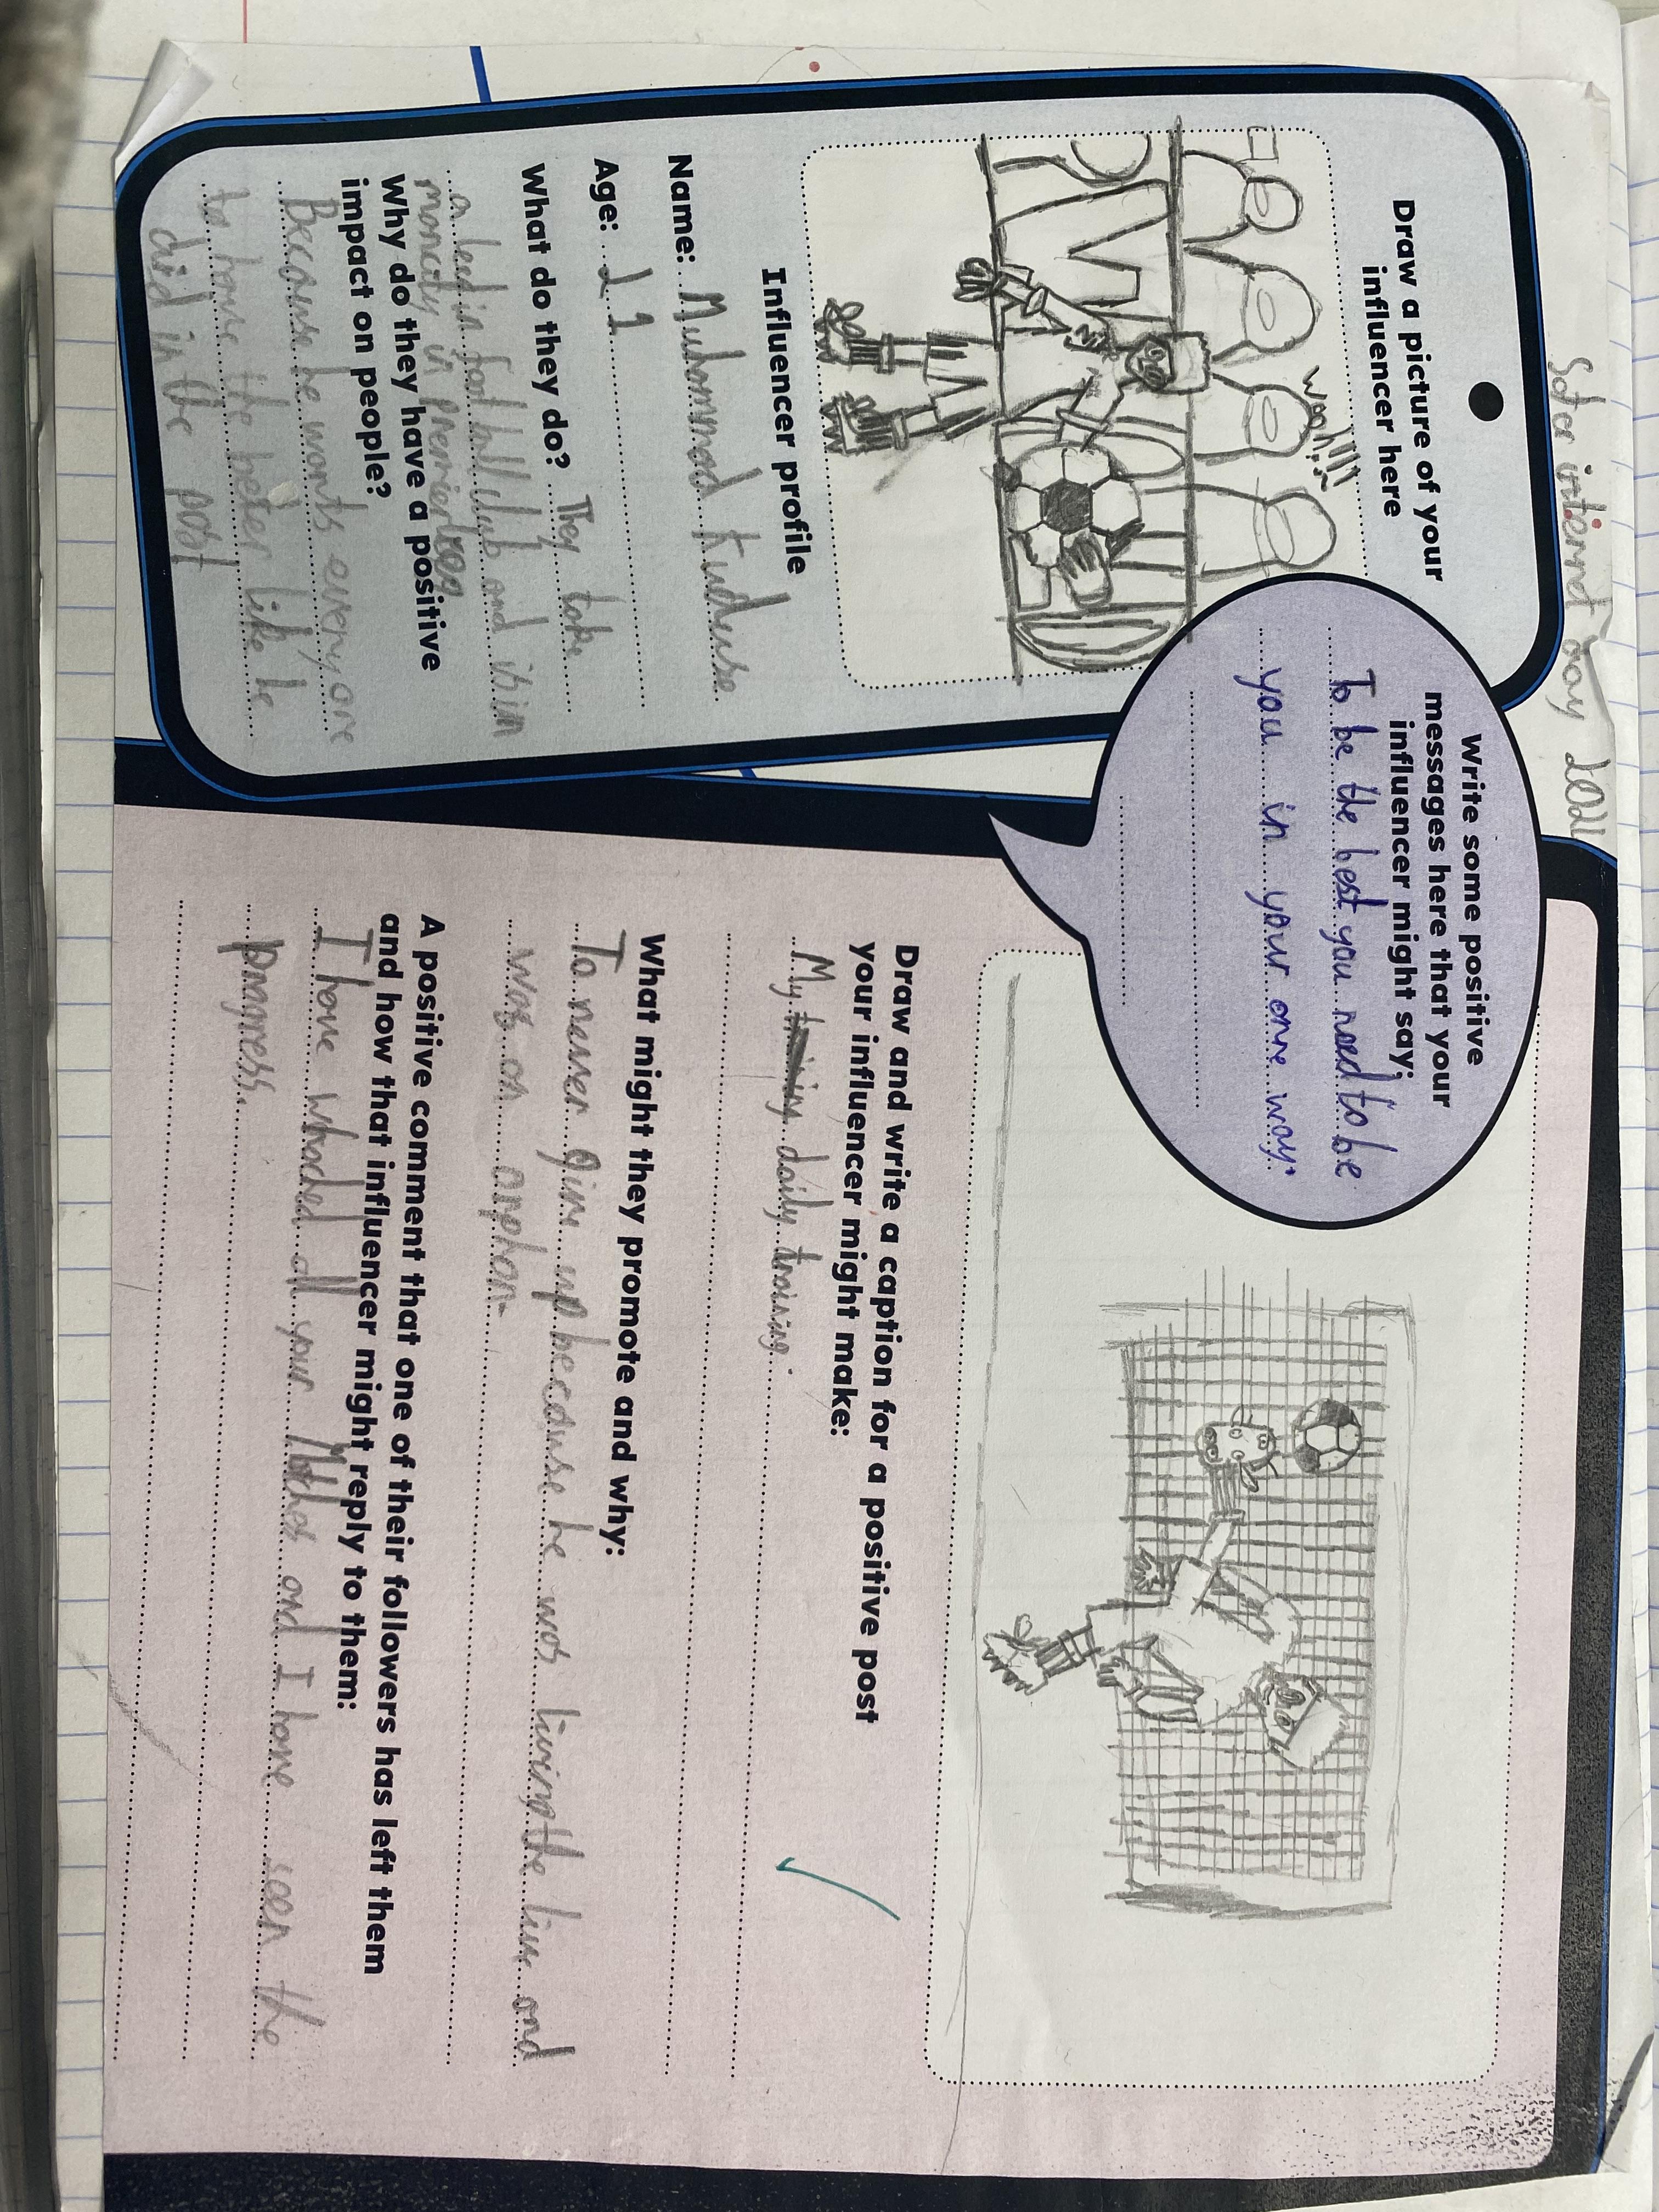 Safer internet day 2024
Draw a picture of your
influencer here
Wooh!!!!
Influencer profile
Name: Muhommad Kuduse
Age: 21
What do they do? They take
a lead in football club and is in
moncity in premierleag
Why do they have a positive
impact on people?
Because he wonts everyone
to have the beter like he
did in the past
Write some positive
messages here that your
influencer might say:
To be the best you need to be
you in your one way.
Draw and write a caption for a positive post
your influencer might make:
My daily training.
What might they promote and why:
To never give up because he was living the live and
was an orphan
A positive comment that one of their followers has left them
and how that influencer might reply to them:
I have whached all your Mathes and I have seen the
progress.